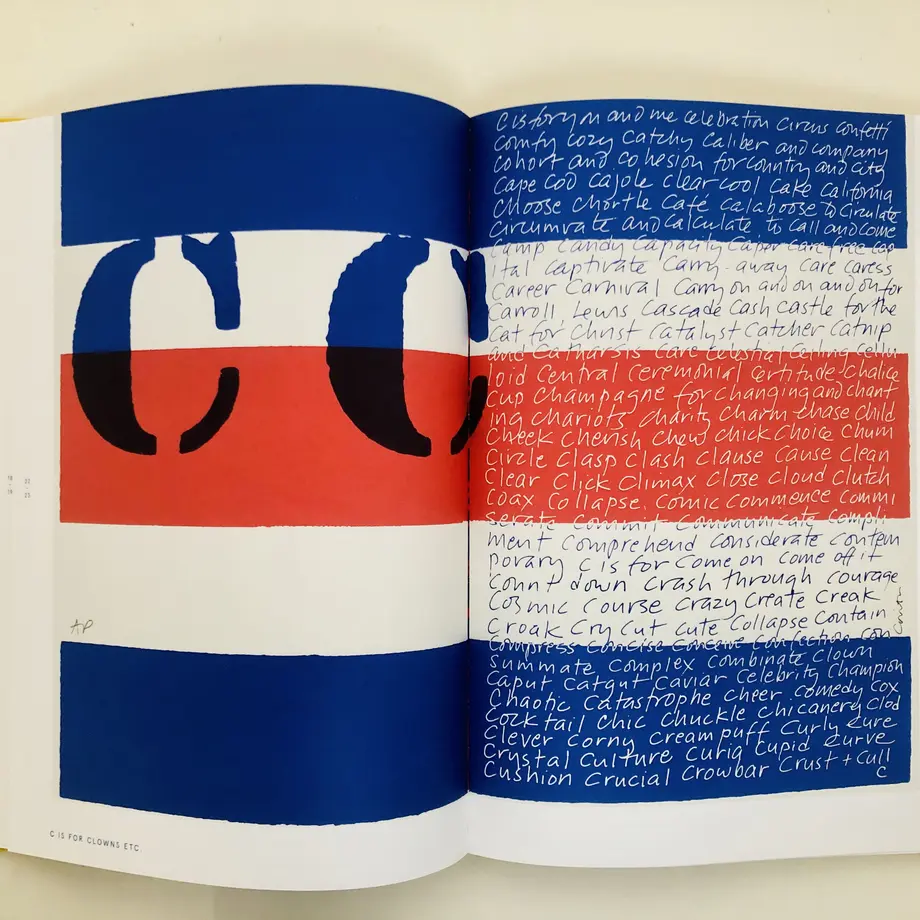 C C
AP
18
-
19
22
-
23
C IS FOR CLOWNS ETC
C is for you and me celebration Circus confetti
comfy cozy catchy caliber and company
cohort and cohesion for country and city
Cape Cod cajole clear cool cake California
Choose Chortle Café calaboose to circulate
Circumvate and calculate to call and come
Camp Candy Capacity Caper carefree cap
ital captivate Carry-away care caress
Career Carnival Carry on and on and on for
Carroll, Lewis Cascade Cash castle for the
Cat, for Christ catalyst catcher catnip
and Catharsis care celestial ceiling cellu
loid central ceremonial certitude Chalice
Cup Champagne for Changing and chant
ing chariots charity charm chase child
Cheek Cherish Chew chick Choice Chum
Circle Clasp Clash Clause Cause Clean
Clear Click Climax Close Cloud Clutch
Coax Collapse Comic Commence Commi
serate Commit Communicate Compli
ment Comprehend Considerate Contem
porary C is for Come on come off it
Count down Crash through Courage
Cosmic Course Crazy Create Creak
Croak Cry Cut Cute Collapse Contain
Compress Concise Conceive Confection Con
summate Complex Combinate Clown
Caput Catgut Caviar Celebrity Champion
Chaotic Catastrophe Cheer Comedy Cox
Cocktail Chic Chuckle Chicanery Clod
Clever Corny Creampuff Curly Cure
Crystal Culture Curia Cupid Curve
Cushion Crucial Crowbar Crust + Cull
C